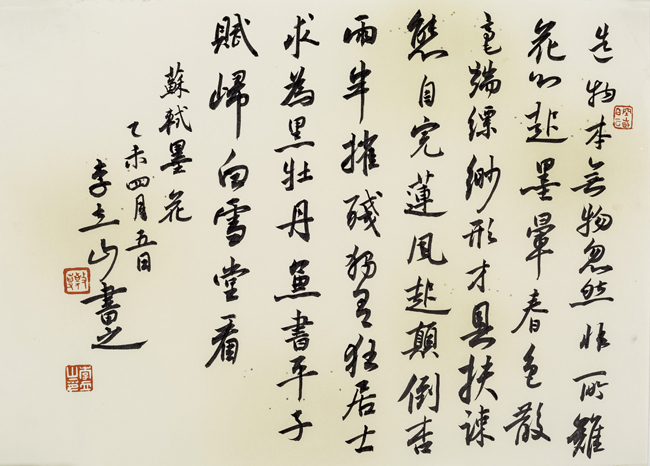 造物本無物忽然非所難
花心起墨暈春色散
毫端縹緲形才具扶疎
態自完蓮風起顛倒杏
雨半摧殘獨有狂居士
求為黑牡丹兼書平子
賦歸向雪堂看
蘇軾墨花
乙未四月五日
李立山書之